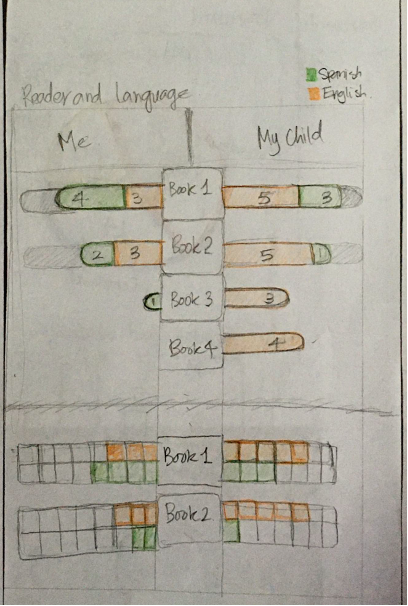 Spanish
English
Reader and language
Me
My Child
4 3 Book 1 5 3
2 3 Book 2 5 1
1 Book 3 3
Book 4 4
Book 1
Book 2